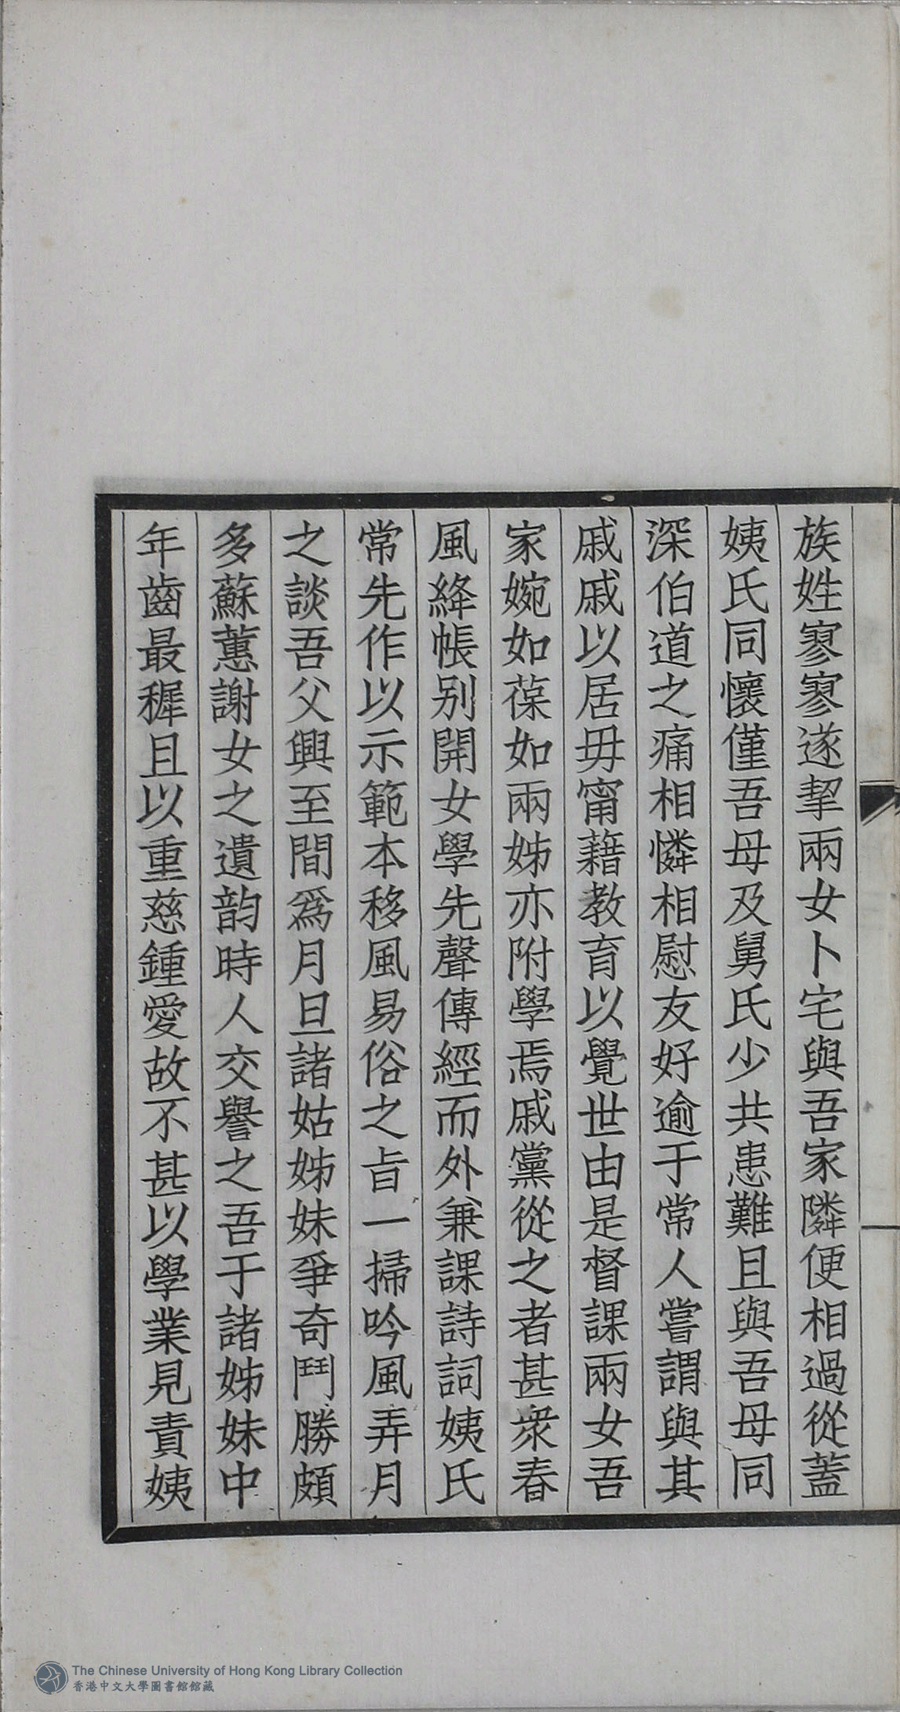 族姓寥寥遂挈兩女卜宅與吾家隣便相過從蓋
姨氏同懷僅吾母及舅氏少共患難且與吾母同
深伯道之痛相憐相慰友好逾于常人嘗謂與其
戚戚以居毋甯藉教育以覺世由是督課兩女吾
家婉如葆如兩姊亦附學焉戚黨從之者甚衆春
風絳帳别開女學先聲傳經而外兼課詩詞姨氏
常先作以示範本移風易俗之旨一掃吟風弄月
之談吾父興至間爲月旦諸姑姊妹爭奇鬥勝頗
多蘇蕙謝女之遺韵時人交譽之吾于諸姊妹中
年齒最穉且以重慈鍾愛故不甚以學業見責姨
The Chinese University of Hong Kong Library Collection
香港中文大學圖書館館藏